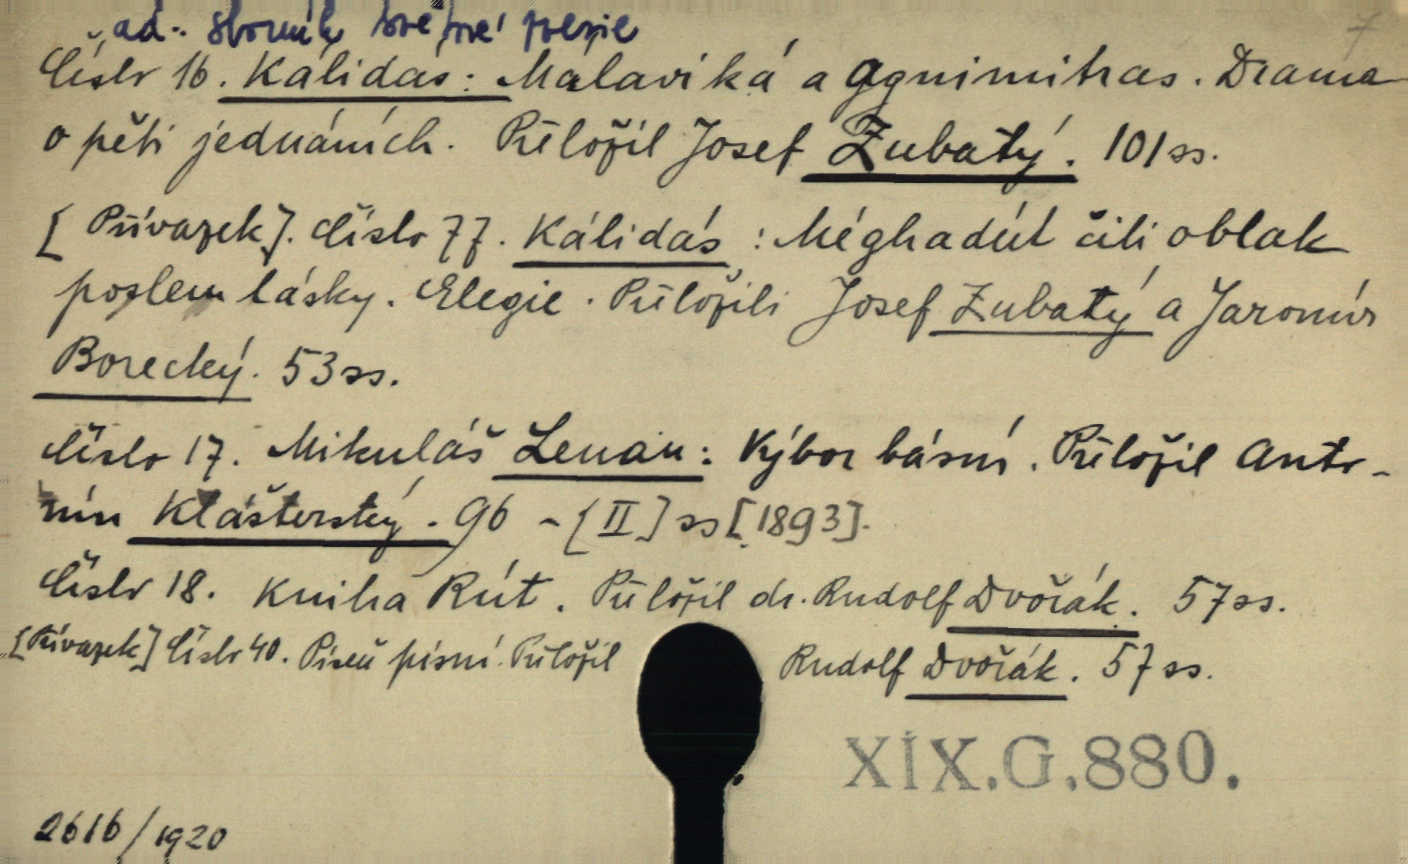 ad. sborník světové poezie
7
Číslo 16. Kálidás: Málaviká a Agnimitras. Drama
o pěti jednáních. Přeložil Josef Zubatý. 101 ss.
[Přívazek]. Číslo 77. Kálidás: Méghadút čili oblak
poslem lásky. Elegie. Přeložili Josef Zubatý a Jaromír
Borecký. 53 ss.
Číslo 17. Mikuláš Lenau: Výbor básní. Přeložil Anto-
nín Klášterský. 96 - [II] ss [1893].
Číslo 18. Kniha Rút. Přeložil dr. Rudolf Dvořák. 57 ss.
[Přívazek] Číslo 40. Píseň písní. Přeložil Rudolf Dvořák. 57 ss.
XIX.G.880.
2616/1920